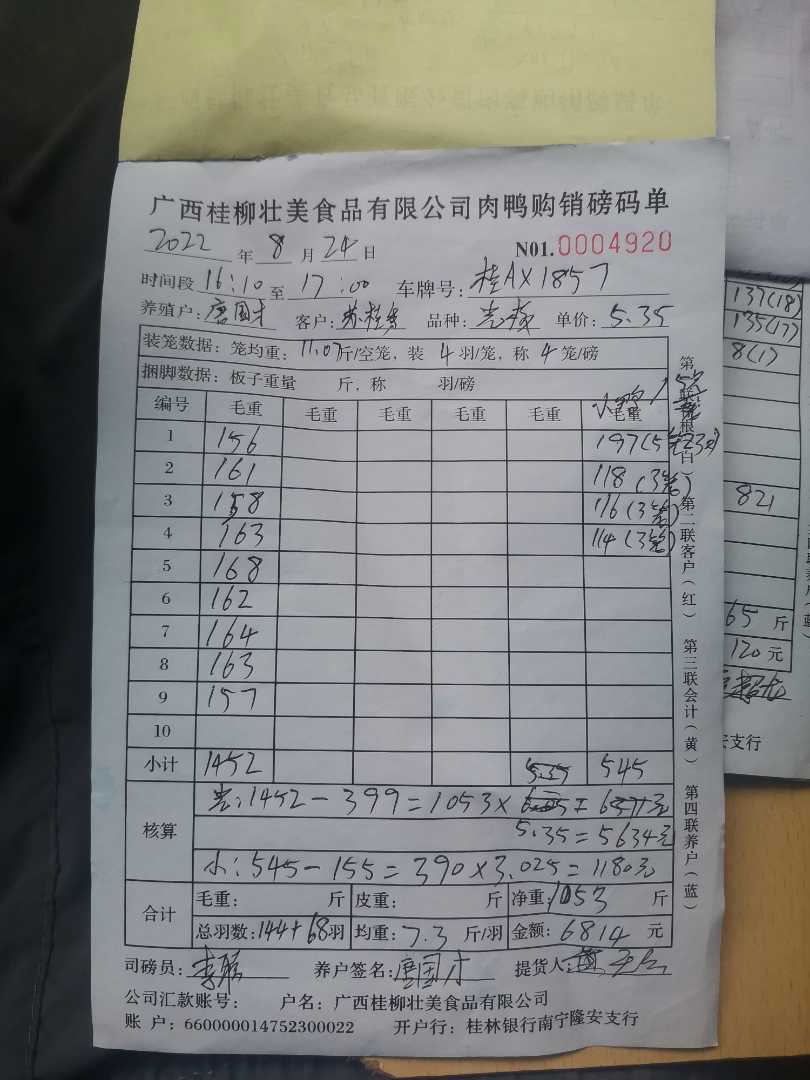 广西桂柳壮美食品有限公司肉鸭购销磅码单
2022年8月24日 N01.0004920
时间段16:10至17:00 车牌号:桂AX1857
养殖户:唐国才 客户: 品种: 单价:5.35
装笼数据:笼均重:11.07斤/空笼,装4羽/笼,称4笼/磅
捆脚数据:板子重量 斤,称 羽/磅
编号 毛重 毛重 毛重 毛重 毛重 毛重
小鸭
1 156 197(5
2 161 118(3笼)
3 158 116(3笼)
4 163 114(3笼)
5 168
6 162
7 164
8 163
9 157
10
小计 1452 5.35 545
核算
光:1452-399=1053×
5.35=5634元
小:545-155=390×3.025=1180元
合计
毛重: 斤 皮重: 斤 净重:1053斤
总羽数:144+68羽 均重:7.3斤/羽 金额:6814元
司磅员: 养户签名:唐国才 提货人:
公司汇款账号: 户名:广西桂柳壮美食品有限公司
账 户:660000014752300022 开户行:桂林银行南宁隆安支行
第一联存根(白) 第二联客户(红) 第三联会计(黄) 第四联养户(蓝)
137(18)
135(17)
8(1)
821
65斤
120元
支行